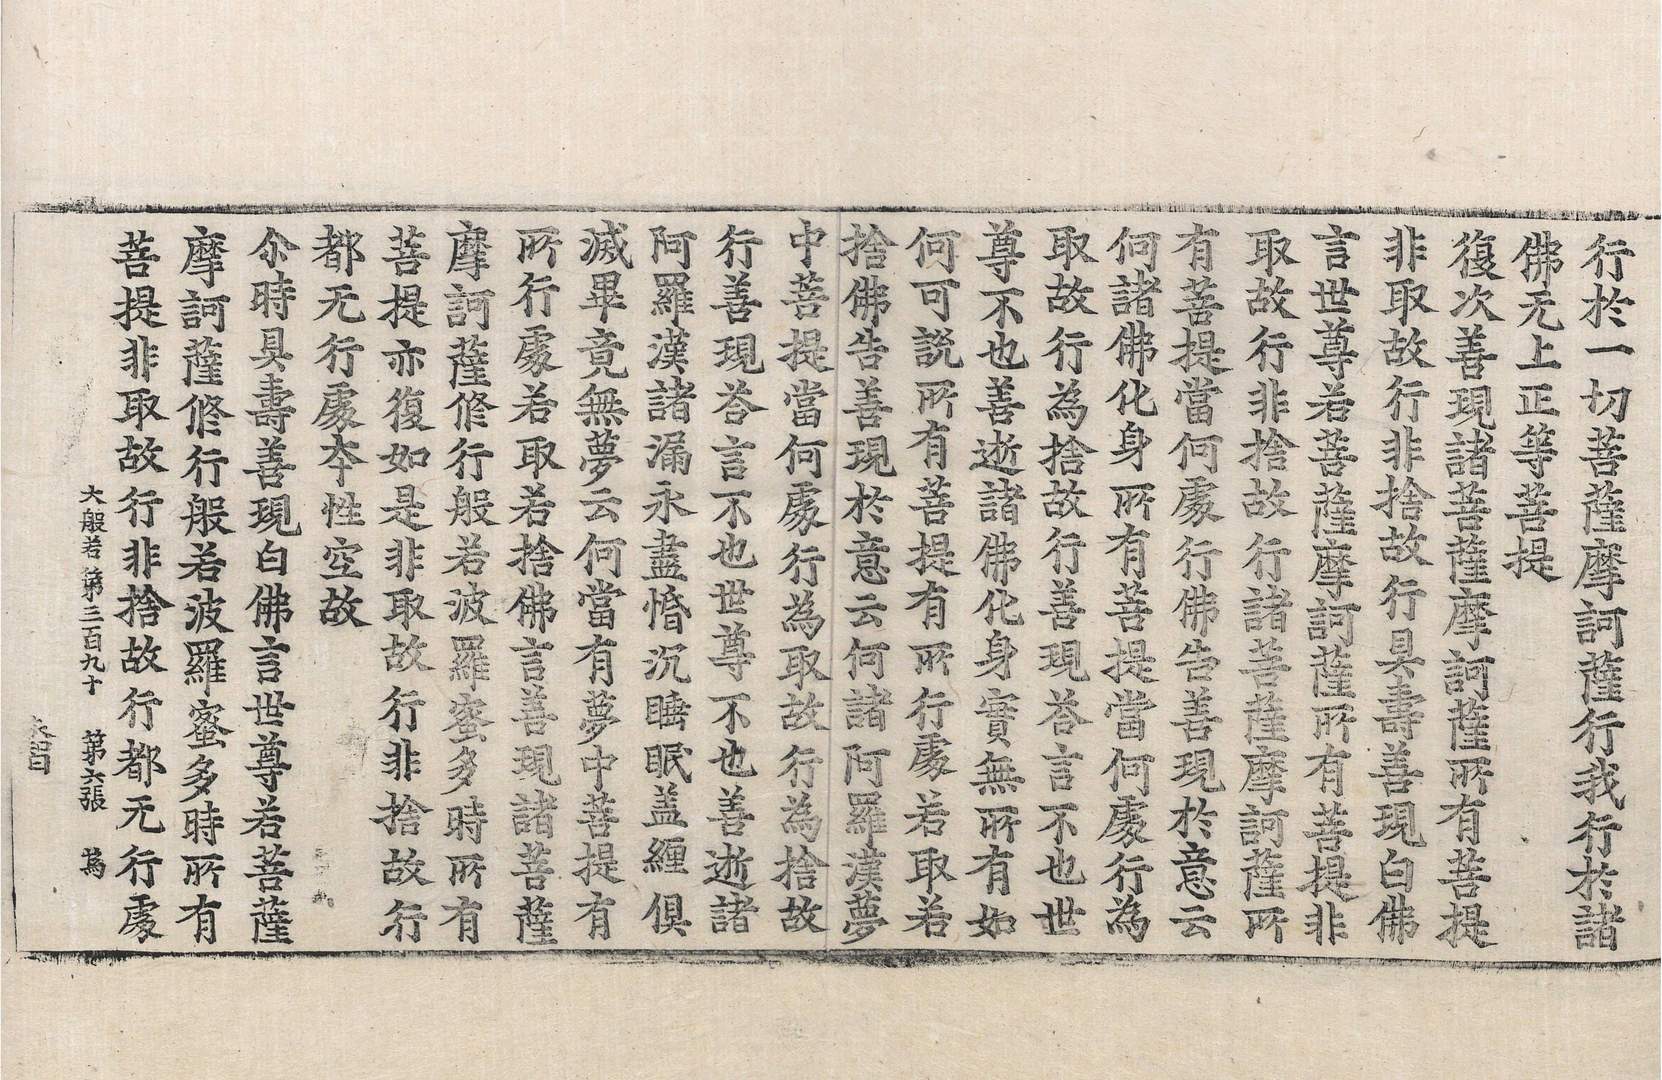 行於一切菩薩摩訶薩行我行於諸
佛无上正等菩提
復次善現諸菩薩摩訶薩所有菩提
非取故行非捨故行具壽善現白佛
言世尊若菩薩摩訶薩所有菩提非
取故行非捨故行諸菩薩摩訶薩所
有菩提當何處行佛告善現於意云
何諸佛化身所有菩提當何處行為
取故行為捨故行善現荅言不也世
尊不也善逝諸佛化身實無所有如
何可說所有菩提有所行處若取若
捨佛告善現於意云何諸阿羅漢夢
中菩提當何處行為取故行為捨故
行善現荅言不也世尊不也善逝諸
阿羅漢諸漏永盡惛沉睡眠盖纏俱
滅畢竟無夢云何當有夢中菩提有
所行處若取若捨佛言善現諸菩薩
摩訶薩修行般若波羅蜜多時所有
菩提亦復如是非取故行非捨故行
都无行處本性空故
尒時具壽善現白佛言世尊若菩薩
摩訶薩修行般若波羅蜜多時所有
菩提非取故行非捨故行都无行處
大般若第三百九十 第六張 為